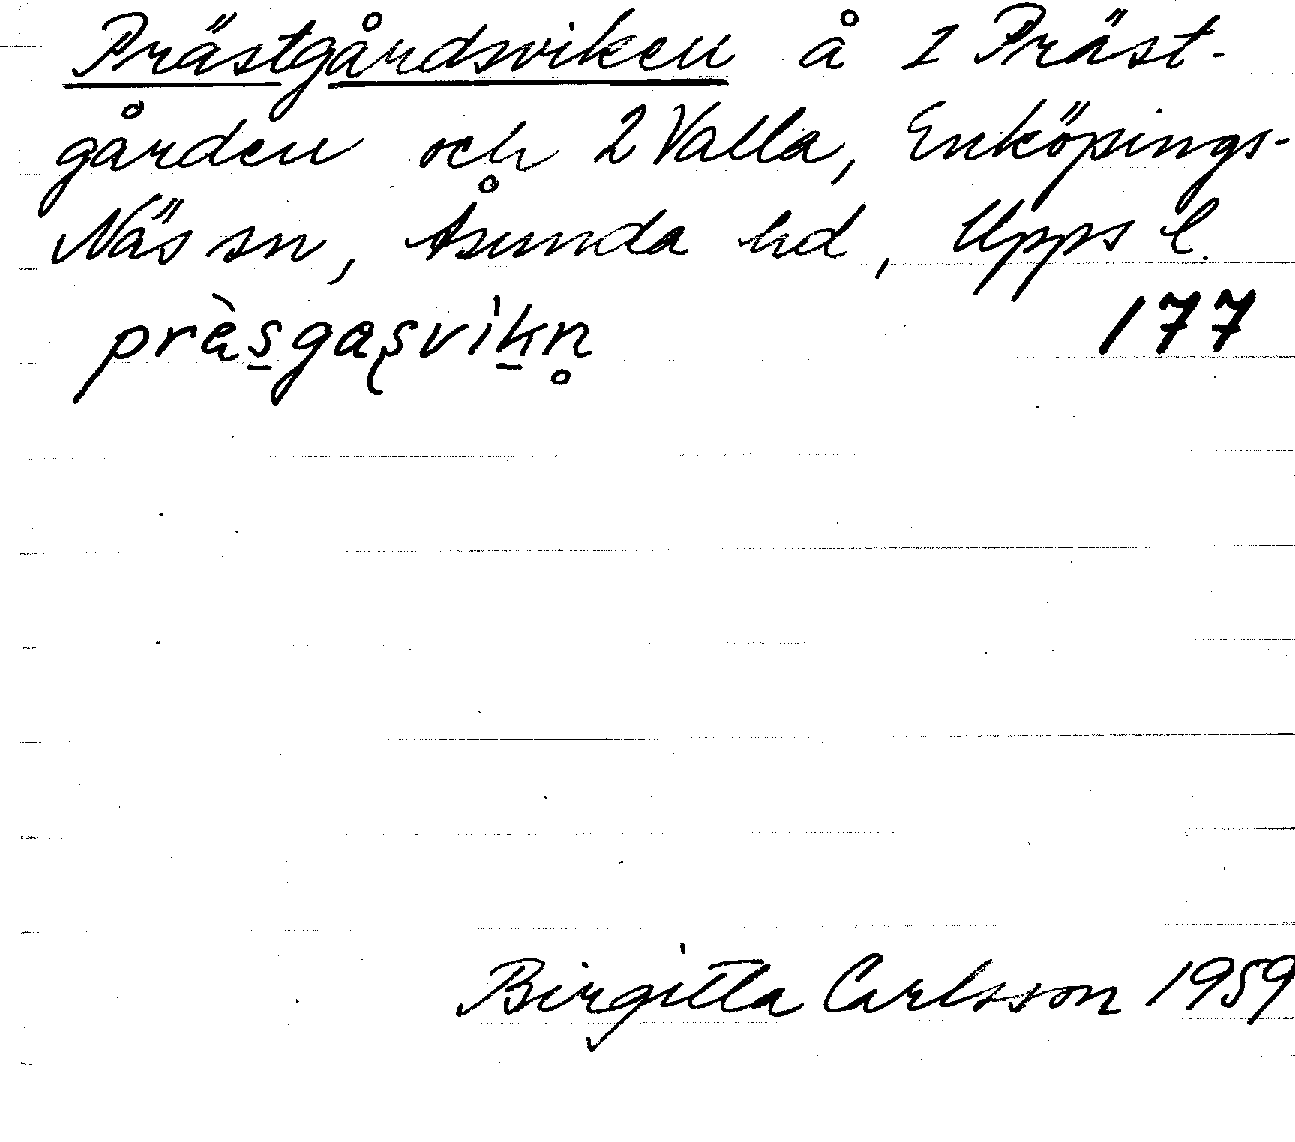 Prästgårdsviken å 1 Präst-
gården och 2 Valla, Enköpings-
Näs sn, Åsunda hd, Upps l.
près̲gaʂvìk̲n̥ 177
Birgitta Carlsson 1959